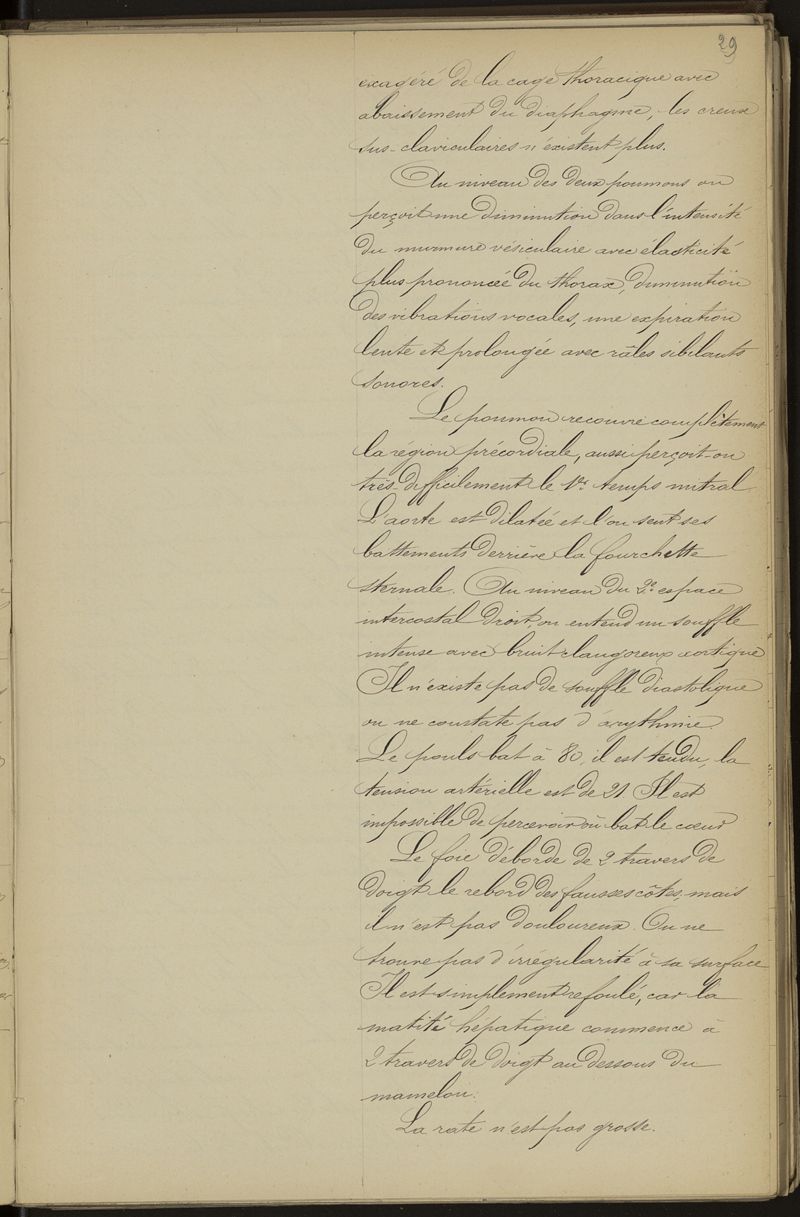 29
exagéré de la cage thoracique avec
abaissement du diaphragme, les creux
sus-claviculaires n'existent plus.
Au niveau des deux poumons on
perçoit une diminution dans l'intensité
du murmure vésiculaire avec élasticité
plus prononcée du thorax, diminution
des vibrations vocales, une expiration
lente et prolongée avec râles sibilants
sonores.
Le poumon recouvre complètement
la région précordiale, aussi perçoit-on
très difficilement le 1er temps mitral
L'aorte est dilatée et l'on sent ses
battements derrière la fourchette
sternale. Au niveau du 2e espace
intercostal droit, on entend un souffle
intense avec bruit clangoreux aortique
Il n'existe pas de souffle diastolique
on ne constate pas d'arythmie.
Le pouls bat à 80, il est tendu, la
tension artérielle est de 21 Il est
impossible de percevoir où bat le cœur
Le foie déborde de 2 travers de
doigt le rebord des fausses côtes, mais
il n'est pas douloureux. On ne
trouve pas d'irrégularité à sa surface
Il est simplement refoulé, car la
matité hépatique commence à
2 travers de doigt au dessous du
mamelon.
La rate n'est pas grosse.